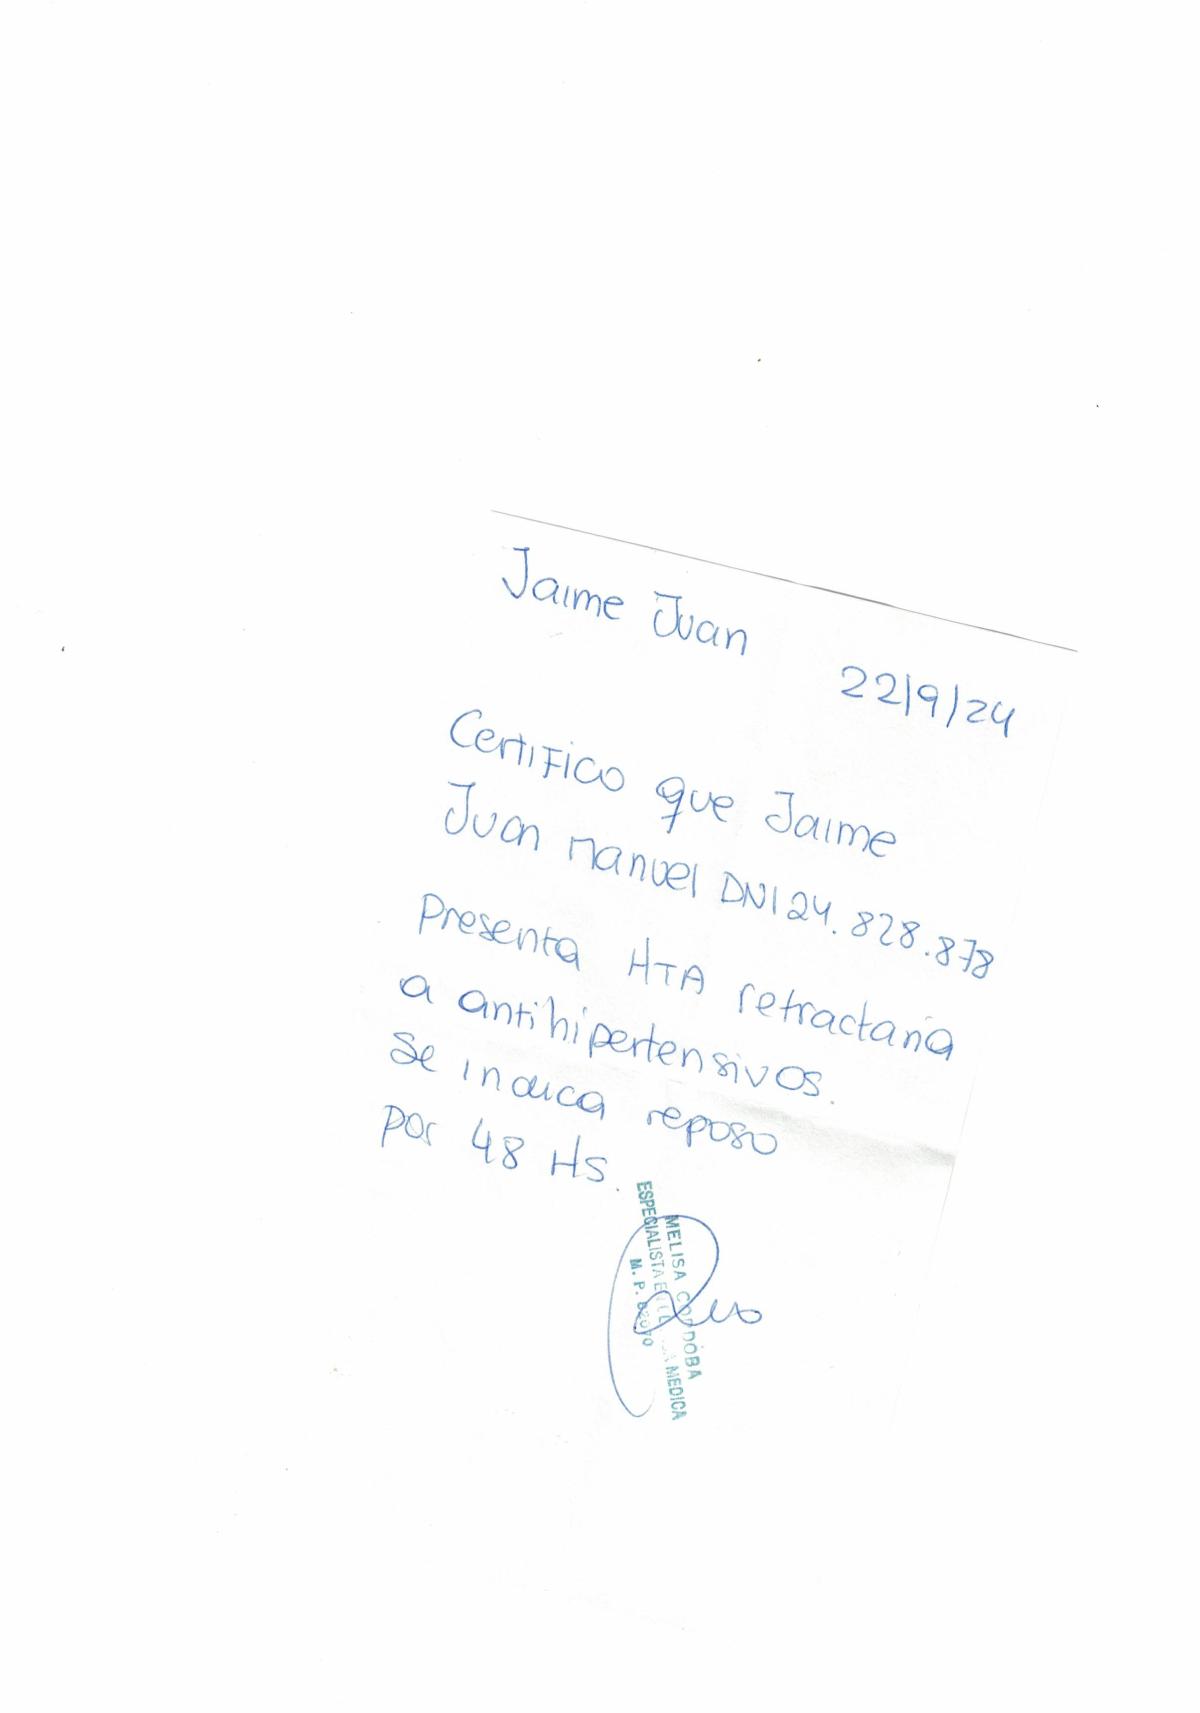 Jaime Juan
22/9/24
Certifico que Jaime
Juan Manuel DNI 24.828.878
Presenta HTA refractaria
a antihipertensivos.
Se indica reposo
por 48 Hs.
MELISA CORDÓBA
ESPECIALISTA EN MEDICA
M. P.